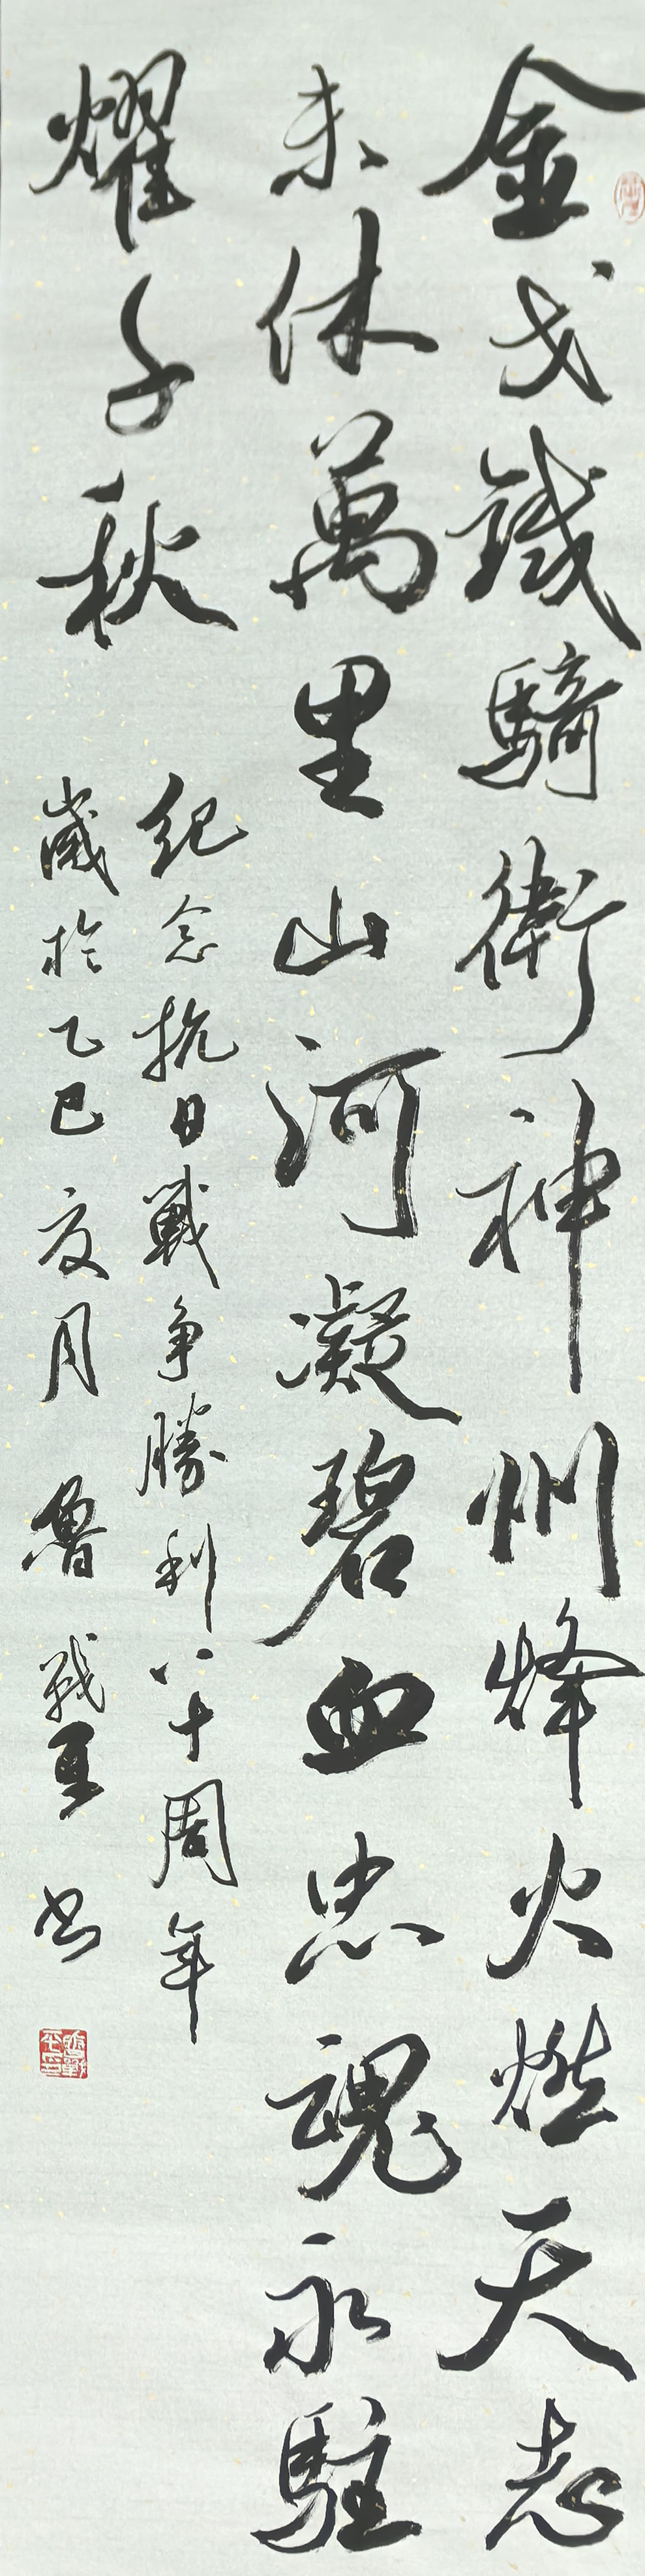 金戈鐵騎衛神州烽火燃天志
未休萬里山河凝碧血忠魂永駐
耀千秋
紀念抗日戰争勝利八十周年
歲於乙巳夏月 魯戰平書